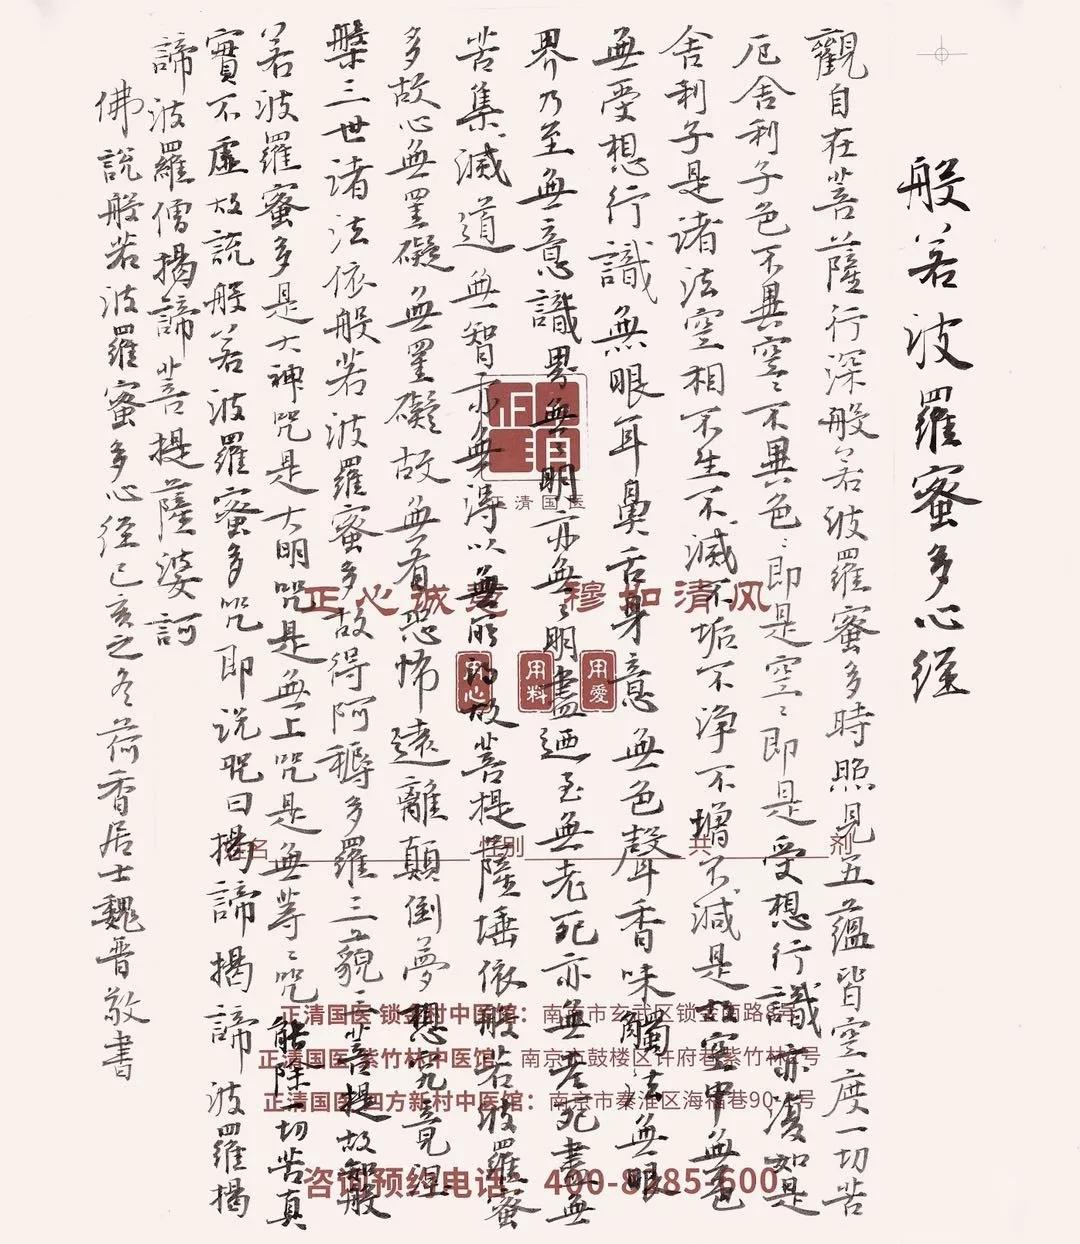 般若波羅蜜多心經
觀自在菩薩行深般若波羅蜜多時照見五蘊皆空度一切苦
厄舍利子色不異空〻不異色〻即是空〻即是受想行識亦復如是
舍利子是諸法空相不生不滅不垢不淨不增不減是故空中無色
無受想行識無眼耳鼻舌身意無色聲香味觸法無眼
界乃至無意識界無無明亦無〻明盡迺至無老死亦無老死盡無
苦集滅道無智亦無得以無所得故菩提薩埵依般若波羅蜜
多故心無罣礙無罣礙故無有恐怖遠離顛倒夢想究竟涅
槃三世諸法依般若波羅蜜多故得阿耨多羅三藐三菩提故知般
若波羅蜜多是大神咒是大明咒是無上咒是無等〻咒能除一切苦真
實不虛故說般若波羅蜜多咒即說咒曰揭諦揭諦波羅揭
諦波羅僧揭諦菩提薩婆訶
佛說般若波羅蜜多心經己亥之冬荷香居士魏晋敬書
正清国医
正心诚意 穆如清风
用心 用料 用爱
名 性别 共 剂
正清国医 锁金村中医馆：南京市玄武区锁金南路8号
正清国医 紫竹林中医馆：南京市鼓楼区许府巷紫竹林 号
正清国医 四方新村中医馆：南京市秦淮区海福巷90- 号
咨询预约电话 400-8 85-600